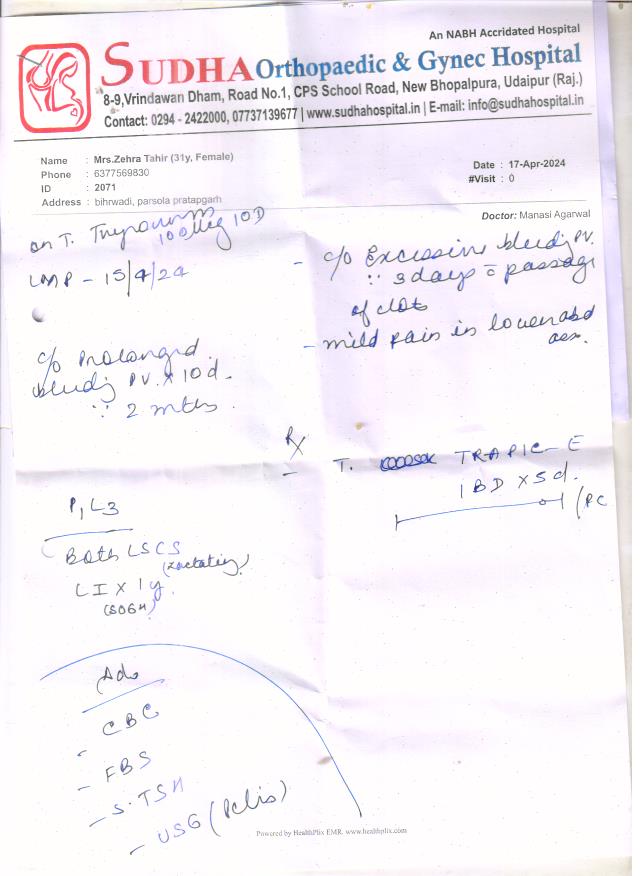 An NABH Accridated Hospital
SUDHA Orthopaedic & Gynec Hospital
8-9,Vrindawan Dham, Road No.1, CPS School Road, New Bhopalpura, Udaipur (Raj.)
Contact: 0294 - 2422000, 07737139677 | www.sudhahospital.in | E-mail: info@sudhahospital.in
Name : Mrs.Zehra Tahir (31y, Female)
Phone : 6377569830
ID : 2071
Address : bihrwadi, parsola pratapgarh
Date : 17-Apr-2024
#Visit : 0
Doctor: Manasi Agarwal
on T.
100 10D
LMP - 15/4/24
c/o Prolonged
bleedig PV. x 10d.
∵ 2 mths.
P1L3
Both LSCS
LI x 1y.
Adv
CBC
- FBS
- S.TSH
- USG (Pelvis)
- c/o Excessive bleedig PV.
∵ 3days c̄ passage
of clots
- mild pain in lower abd
Rx
- T. TRAPIC-E
1 BD x 5d.
Powered by HealthPlix EMR. www.healthplix.com